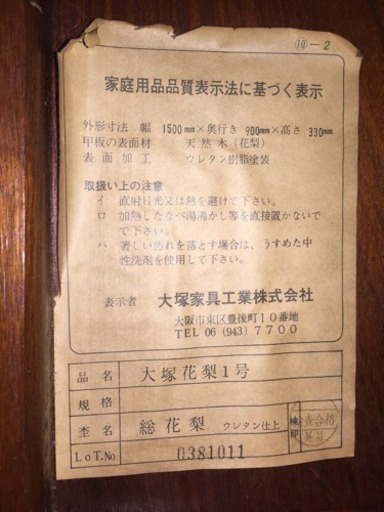 ⑩-2
家庭用品品質表示法に基づく表示
外形寸法 幅 1500mm×奥行き 900mm×高さ 330mm
甲板の表面材 天然木(花梨)
表面加工 ウレタン樹脂塗装
取扱い上の注意
イ 直射日光又は熱を避けて下さい。
ロ 加熱したなべ湯沸かし等を直接置かないで
で下さい。
ハ 著しい汚れを落とす場合は、うすめた中
性洗剤を使用して下さい。
表示者 大塚家具工業株式会社
大阪市東区豊後町10番地
TEL 06(943)7700
品名 大塚花梨1号
規格
杢名 総花梨 ウレタン仕上 検印 査合格
LoT.No 0381011